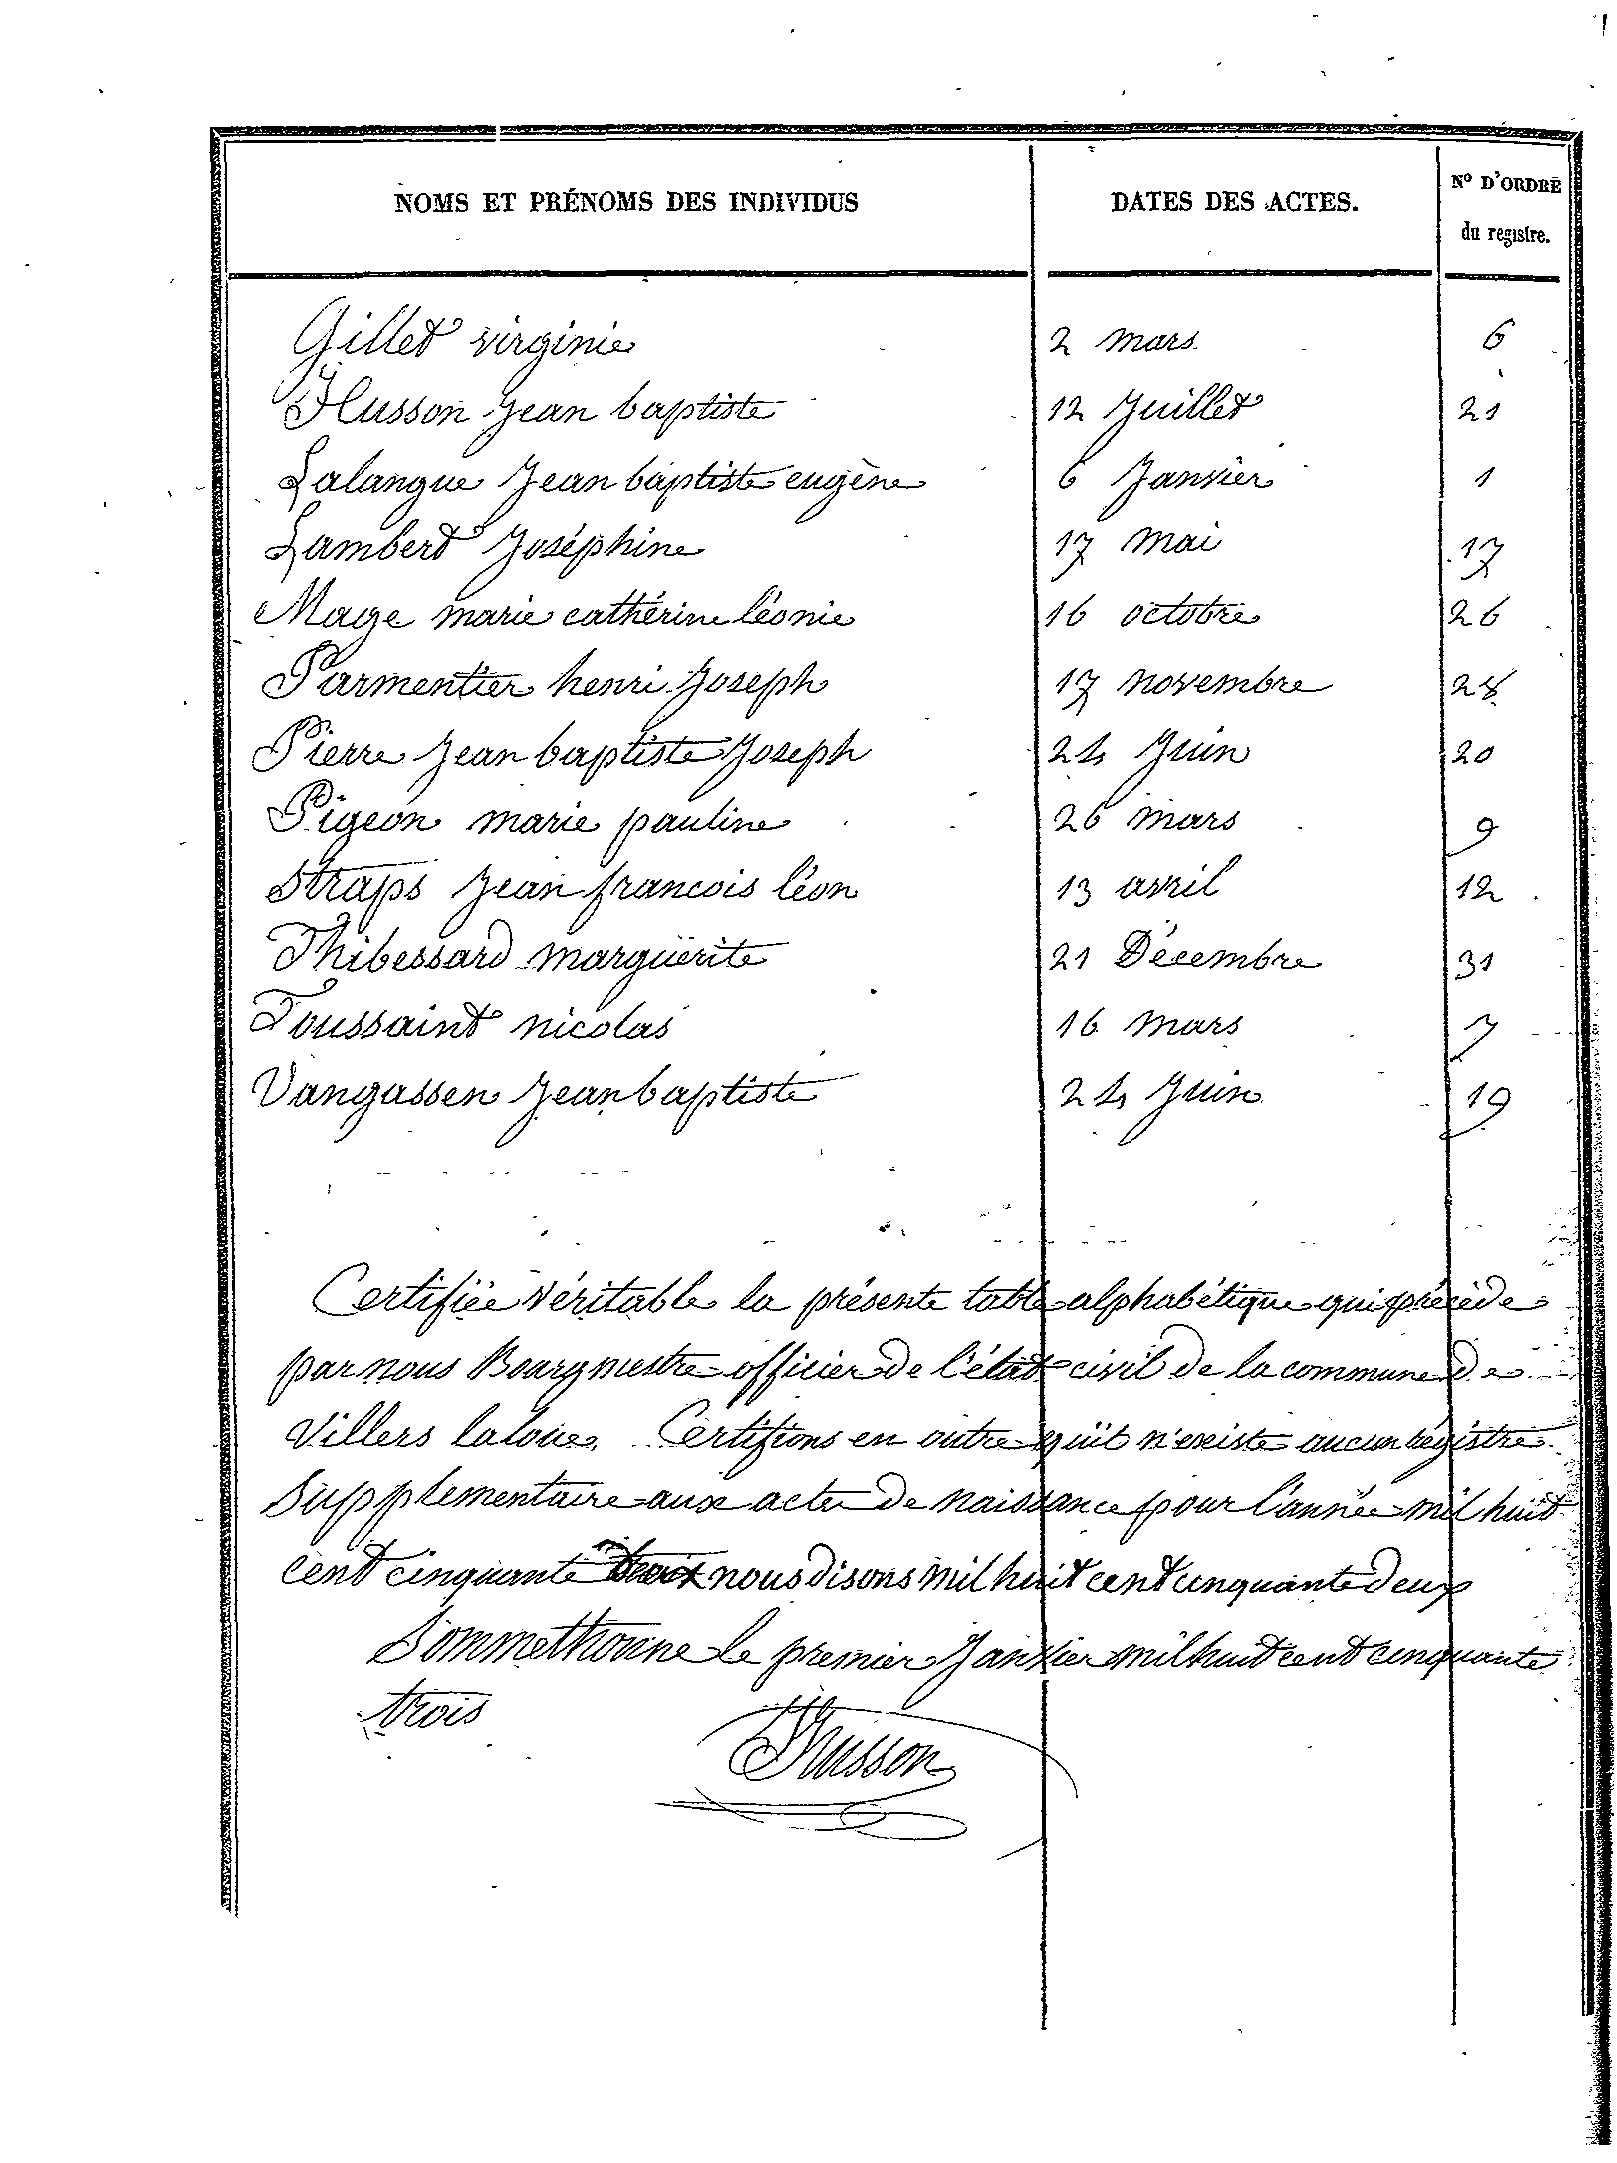 NOMS ET PRÉNOMS DES INDIVIDUS DATES DES ACTES. N° D'ORDRE
du registre.
Gillet virginie 2 mars 6
Husson Jean baptiste 12 Juillet 21
Lalangue Jean baptiste eugène 6 Janvier 1
Lambert Joséphine 17 mai 17
Mage marie cathérine léonie 16 octobre 26
Parmentier henri Joseph 17 novembre 28
Pierre Jean baptiste Joseph 24 Juin 20
Pigeon marie pauline 26 mars 9
Straps Jean francois léon 13 avril 12
Thibessard marguerite 21 Décembre 31
Toussaint nicolas 16 mars 7
Vangassen Jean baptiste 24 Juin 19
Certifiée véritable la présente table alphabétique qui précède
par nous Bourgmestre officier de l'état civil de la commune de
Villers laloue. Certifions en outre qu'il n'existe aucun régistre
Supplementaire aux acte de naissance pour l'année mil huit
cent cinquante nous disons mil huit cent cinquante deux
Sommethonne le premier Janvier mil huit cent cinquante
trois
Husson